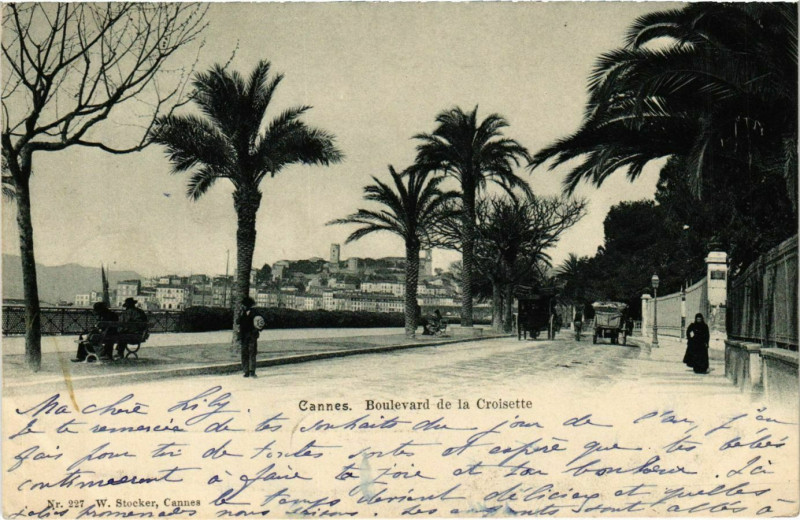 Cannes. Boulevard de la Croisette
Ma chère Lily.
Je te remercie de tes souhaits du jour de l'an, j'en
fais pour toi de toutes sortes et espère que tes bébés
continueront à faire ta joie et ton bonheur. Ici
Nr. 227 W. Stocker, Cannes
le temps devient délicieux et quelles
jolies promenades nous faisons. Les enfants sont allés à